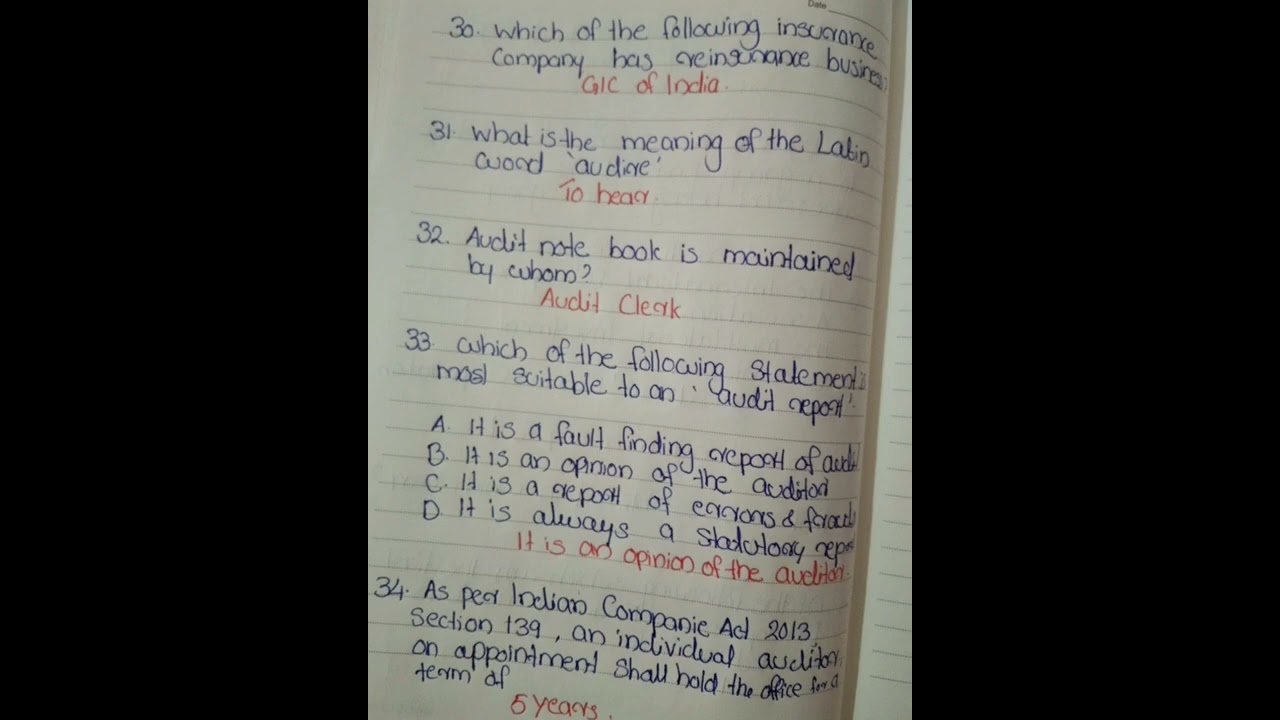 Date
30. Which of the following insurance
Company has reinsurance busines
GIC of India.
31. What is the meaning of the Latin
word 'audire'
To hear.
32. Audit note book is maintained
by whom?
Audit Clerk
33. Which of the following Statement
most suitable to an 'audit report'
A. It is a fault finding report of audit
B. It is an opinion of the auditor
C. It is a report of errors & fraud
D It is always a statutory repo
It is an opinion of the auditor.
34. As per Indian Companie Act 2013
Section 139, an individual auditor,
on appointment shall hold the office for a
term of
5 years.